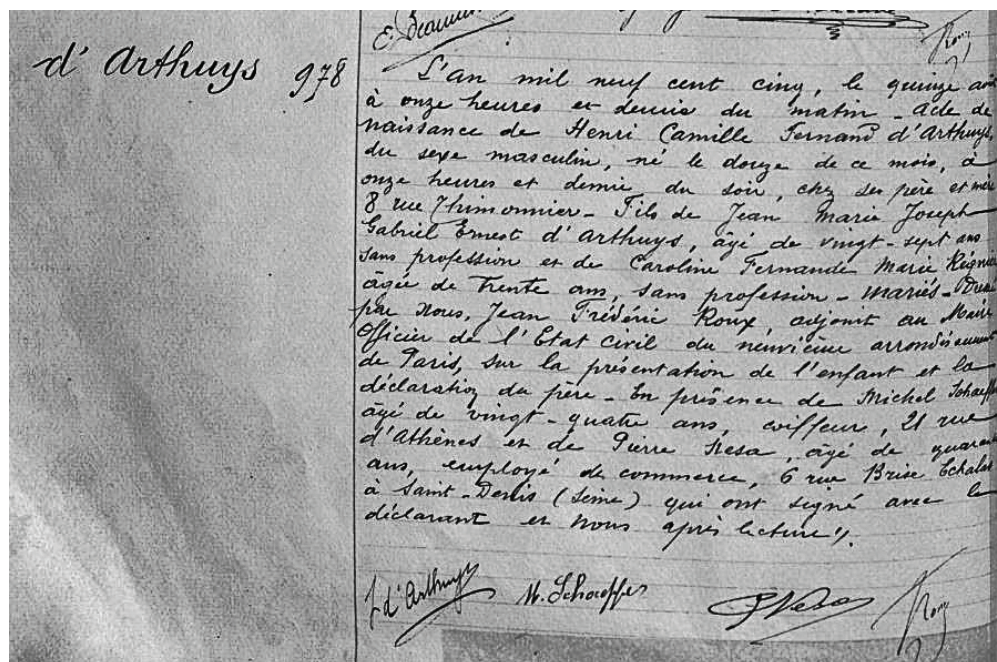 E. Beaumin
Roux
d'Arthuys 978
L'an mil neuf cent cinq, le quinze aoû
à onze heures et demie du matin - Acte de
naissance de Henri Camille Fernand d'Arthuys,
du sexe masculin, né le douze de ce mois, à
onze heures et demie du soir, chez ses père et mère
8 rue Thimonnier - Fils de Jean Marie Joseph
Gabriel Ernest d'Arthuys, âgé de vingt-sept ans
sans profession et de Caroline Fernande Marie Régnier
âgée de trente ans, sans profession - mariés - Dressé
par Nous, Jean Frédéric Roux, adjoint au Maire
Officier de l'Etat civil du neuvième arrondissement
de Paris, sur la présentation de l'enfant et la
déclaration du père - En présence de Michel Schaeffe
âgé de vingt-quatre ans, coiffeur, 21 rue
d'Athènes et de Pierre Nesa, âgé de quaran
ans, employé de commerce, 6 rue Brise Echalas
à Saint-Denis (Seine) qui ont signé avec le
déclarant et Nous après lecture ".
J d'Arthuys M. Schaeffer P Nesa Roux